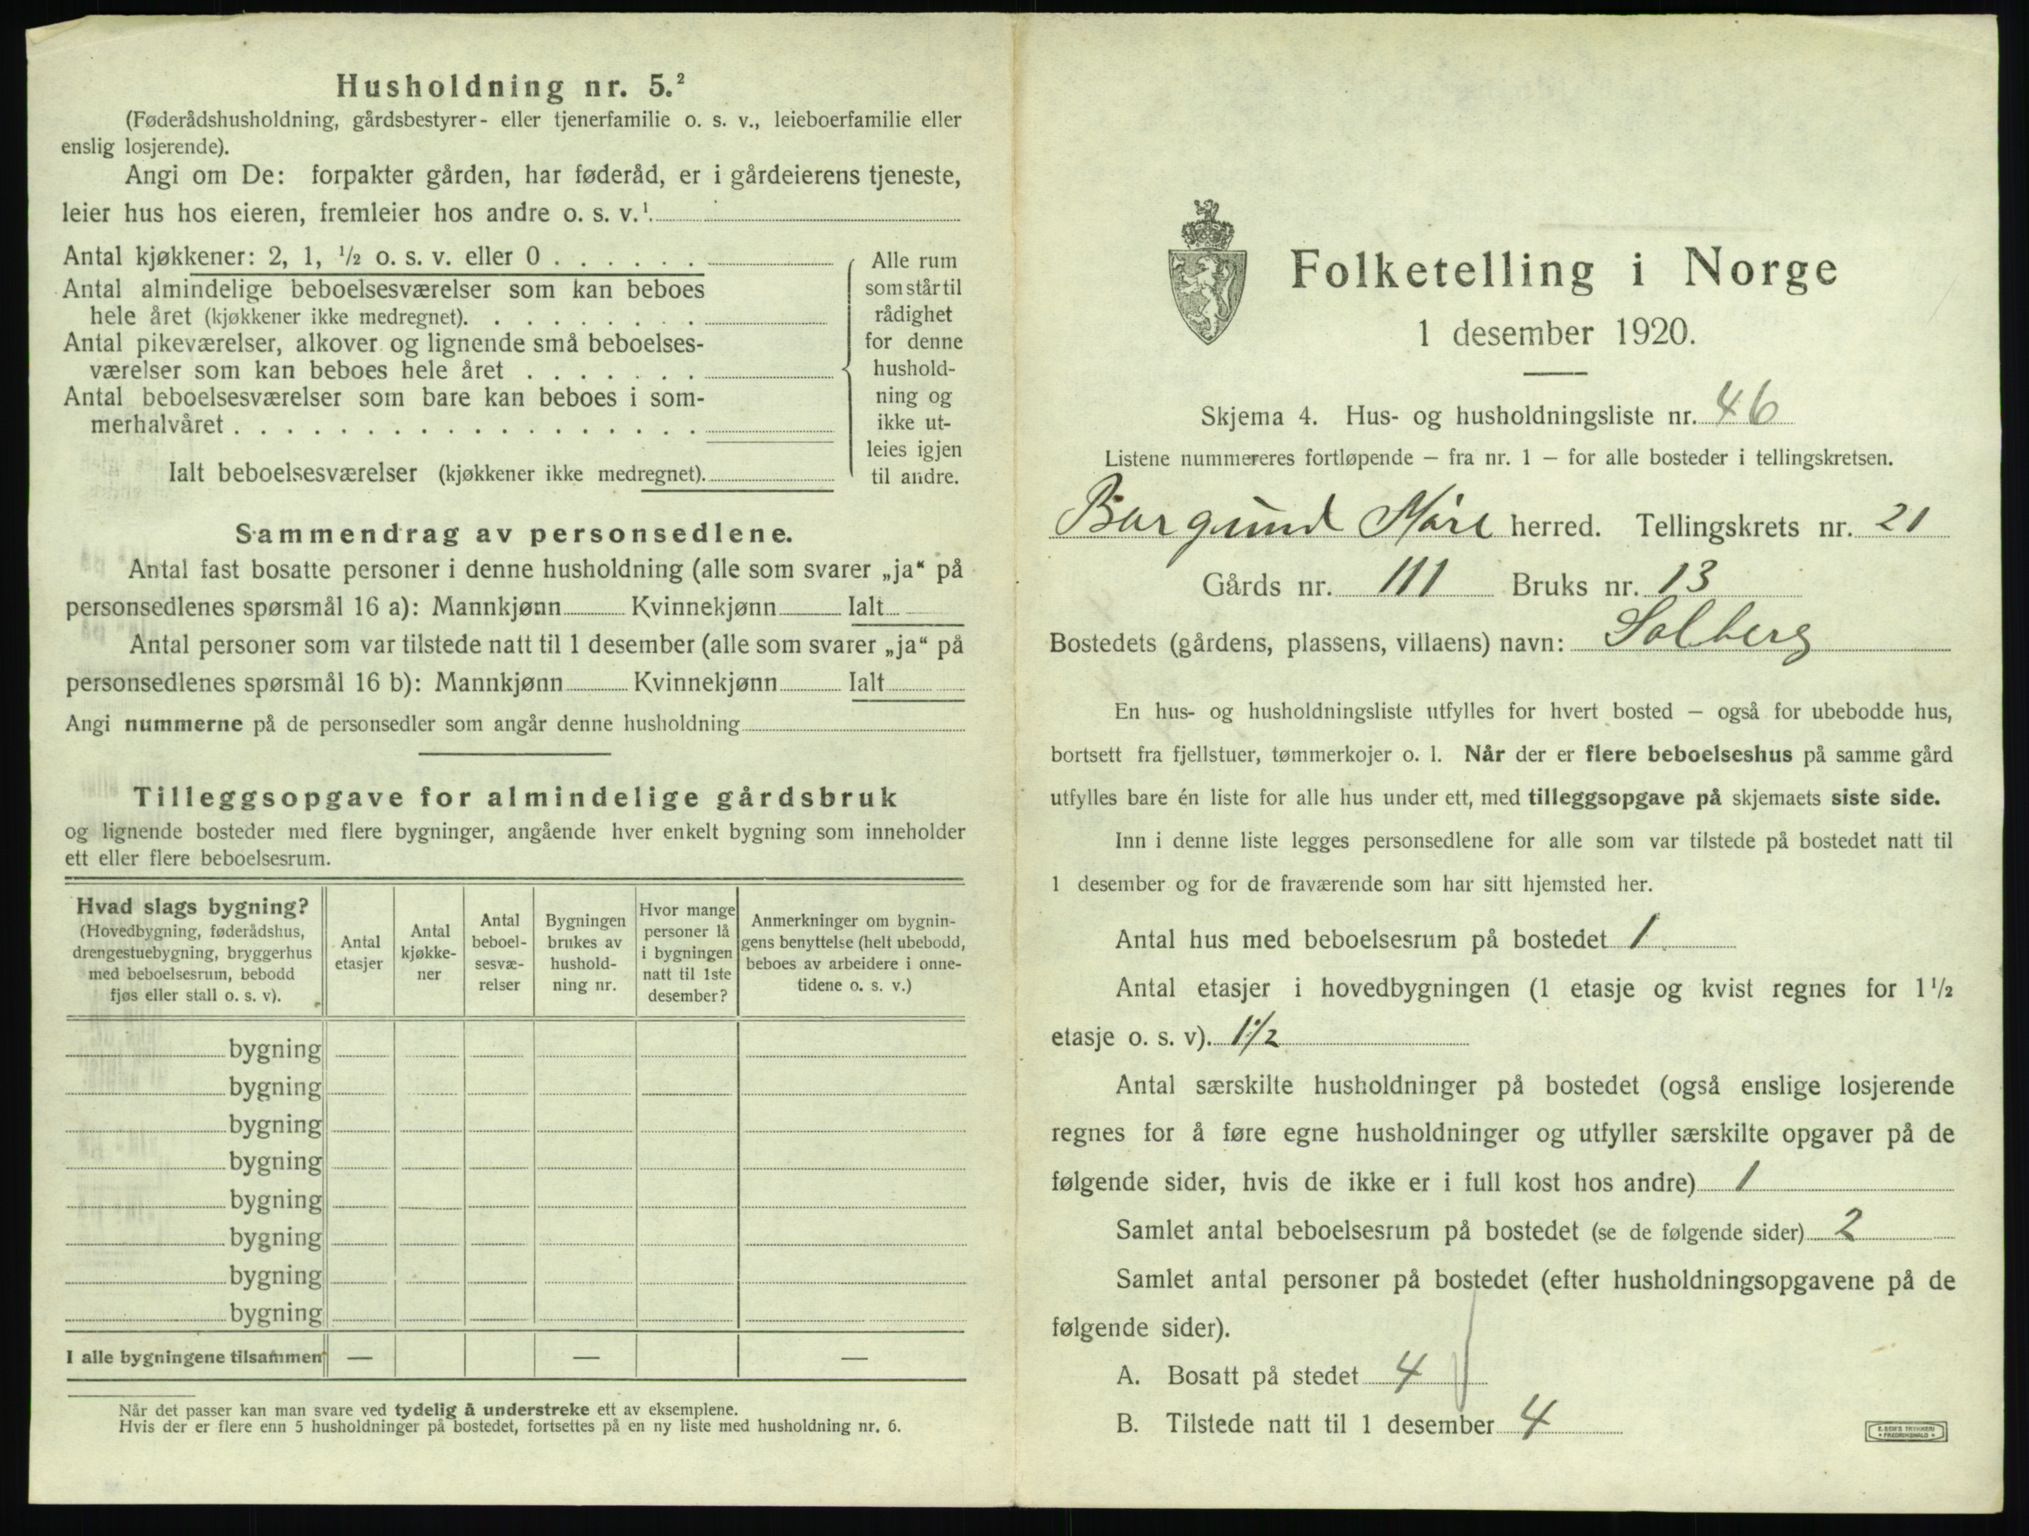 Husholdning nr. 5.²
(Føderådshusholdning, gårdsbestyrer- eller tjenerfamilie o. s. v., leieboerfamilie eller
enslig losjerende).
Angi om De: forpakter gården, har føderåd, er i gårdeierens tjeneste,
leier hus hos eieren, fremleier hos andre o. s. v.¹
Antal kjøkkener: 2, 1, ½ o. s. v. eller 0 . . . . . .
Antal almindelige beboelsesværelser som kan beboes
hele året (kjøkkener ikke medregnet). . . . . . . . .
Antal pikeværelser, alkover og lignende små beboelses-
værelser som kan beboes hele året . . . . . . .
Antal beboelsesværelser som bare kan beboes i som-
merhalvåret . . . . . . . . . . . . . . . . . .
Ialt beboelsesværelser (kjøkkener ikke medregnet).
Alle rum
som står til
rådighet
for denne
hushold-
ning og
ikke ut-
leies igjen
til andre.
Sammendrag av personsedlene.
Antal fast bosatte personer i denne husholdning (alle som svarer „ja“ på
personsedlenes spørsmål 16 a): Mannkjønn Kvinnekjønn Ialt
Antal personer som var tilstede natt til 1 desember (alle som svarer „ja“ på
personsedlenes spørsmål 16 b): Mannkjønn Kvinnekjønn Ialt
Angi nummerne på de personsedler som angår denne husholdning
Tilleggsopgave for almindelige gårdsbruk
og lignende bosteder med flere bygninger, angående hver enkelt bygning som inneholder
ett eller flere beboelsesrum.
Hvad slags bygning?
(Hovedbygning, føderådshus,
drengestuebygning, bryggerhus
med beboelsesrum, bebodd
fjøs eller stall o. s. v).
Antal
etasjer
Antal
kjøkke-
ner
Antal
beboel-
sesvæ-
relser
Bygningen
brukes av
hushold-
ning nr.
Hvor mange
personer lå
i bygningen
natt til 1ste
desember?
Anmerkninger om bygnin-
gens benyttelse (helt ubebodd,
beboes av arbeidere i onne-
tidene o. s. v.)
bygning
bygning
bygning
bygning
bygning
bygning
bygning
bygning
I alle bygningene tilsammen — — —
Når det passer kan man svare ved tydelig å understreke ett av eksemplene.
Hvis der er flere enn 5 husholdninger på bostedet, fortsettes på en ny liste med husholdning nr. 6.
Folketelling i Norge
1 desember 1920.
Skjema 4. Hus- og husholdningsliste nr. 46
Listene nummereres fortløpende — fra nr. 1 — for alle bosteder i tellingskretsen.
Borgund Møre herred. Tellingskrets nr. 21
Gårds nr. 111 Bruks nr. 13
Bostedets (gårdens, plassens, villaens) navn: Solberg
En hus- og husholdningsliste utfylles for hvert bosted — også for ubebodde hus,
bortsett fra fjellstuer, tømmerkojer o. l. Når der er flere beboelseshus på samme gård
utfylles bare én liste for alle hus under ett, med tilleggsopgave på skjemaets siste side.
Inn i denne liste legges personsedlene for alle som var tilstede på bostedet natt til
1 desember og for de fraværende som har sitt hjemsted her.
Antal hus med beboelsesrum på bostedet 1
Antal etasjer i hovedbygningen (1 etasje og kvist regnes for 1 ½
etasje o. s. v). 1½
Antal særskilte husholdninger på bostedet (også enslige losjerende
regnes for å føre egne husholdninger og utfyller særskilte opgaver på de
følgende sider, hvis de ikke er i full kost hos andre) 1
Samlet antal beboelsesrum på bostedet (se de følgende sider) 2
Samlet antal personer på bostedet (efter husholdningsopgavene på de
følgende sider).
A. Bosatt på stedet 4
B. Tilstede natt til 1 desember 4